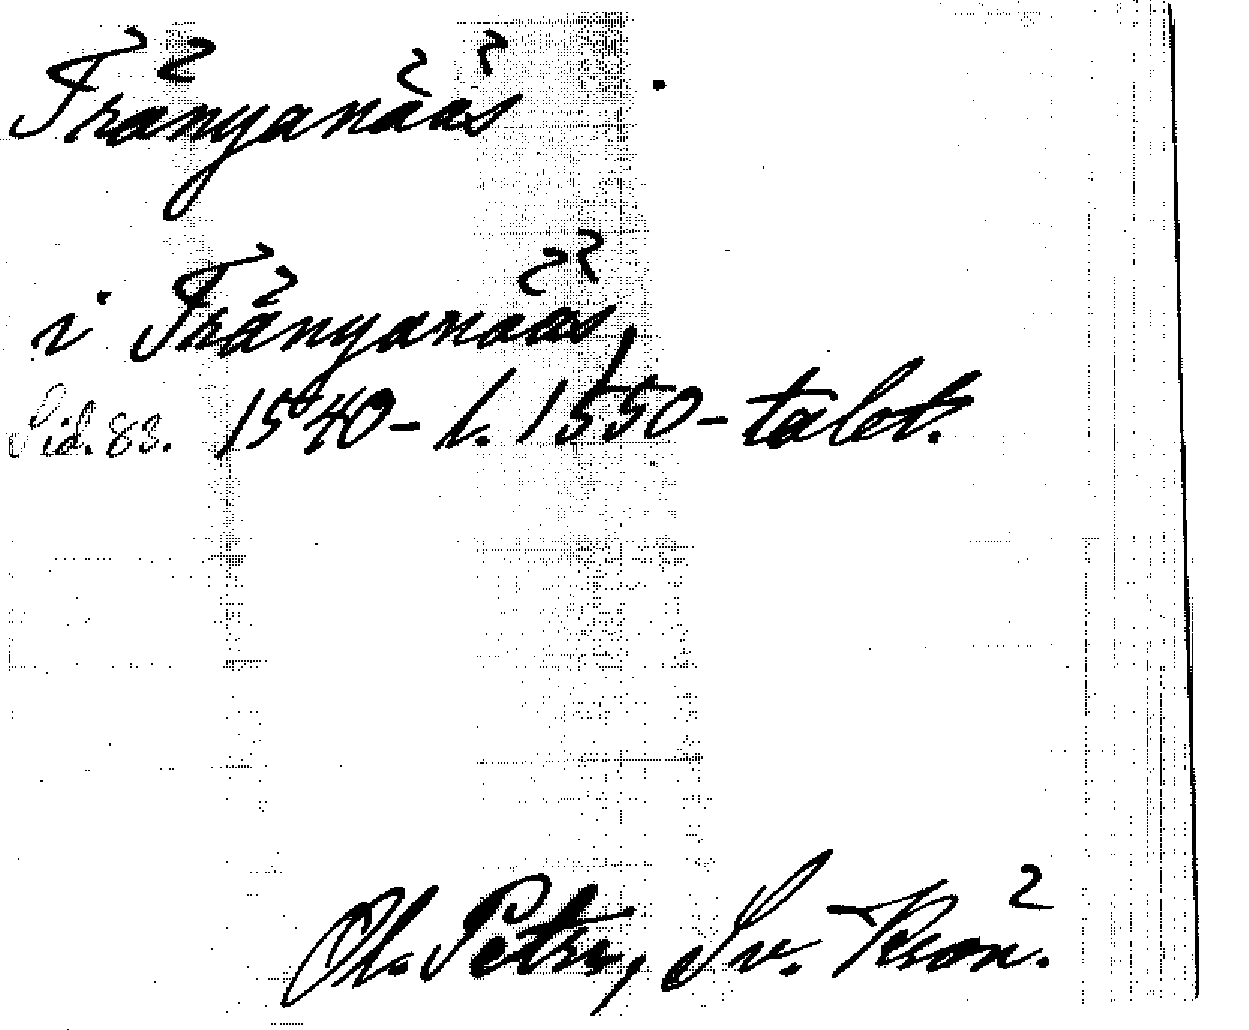 Tränyanääs
i Tränyanääs,
Sid. 83. 1540- l. 1550-talet.
Ol. Petri, Sv. Krön.